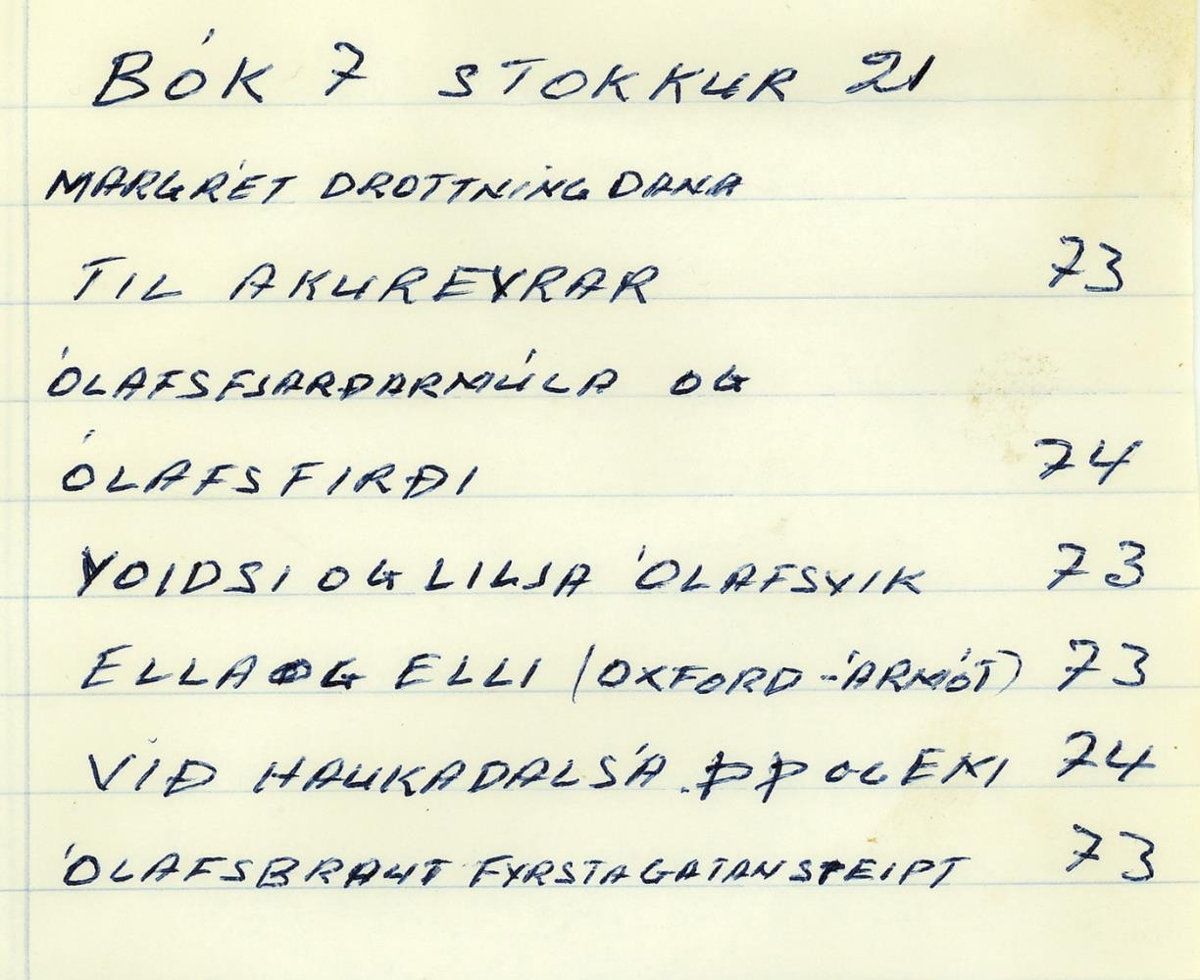 BÓK 7 STOKKUR 21
MARGRÉT DROTTNING DANA
TIL AKUREYRAR 73
ÓLAFSFJARÐARMÚLA OG
ÓLAFSFIRÐI 74
VOIDSI OG LILJA ÓLAFSVIK 73
ELLA OG ELLI (OXFORD - ÁRMÓT) 73
VIÐ HAUKADALSÁ ÞÞ OG EXI 74
ÓLAFSBRAUT FYRSTAGATANSTEIPT 73